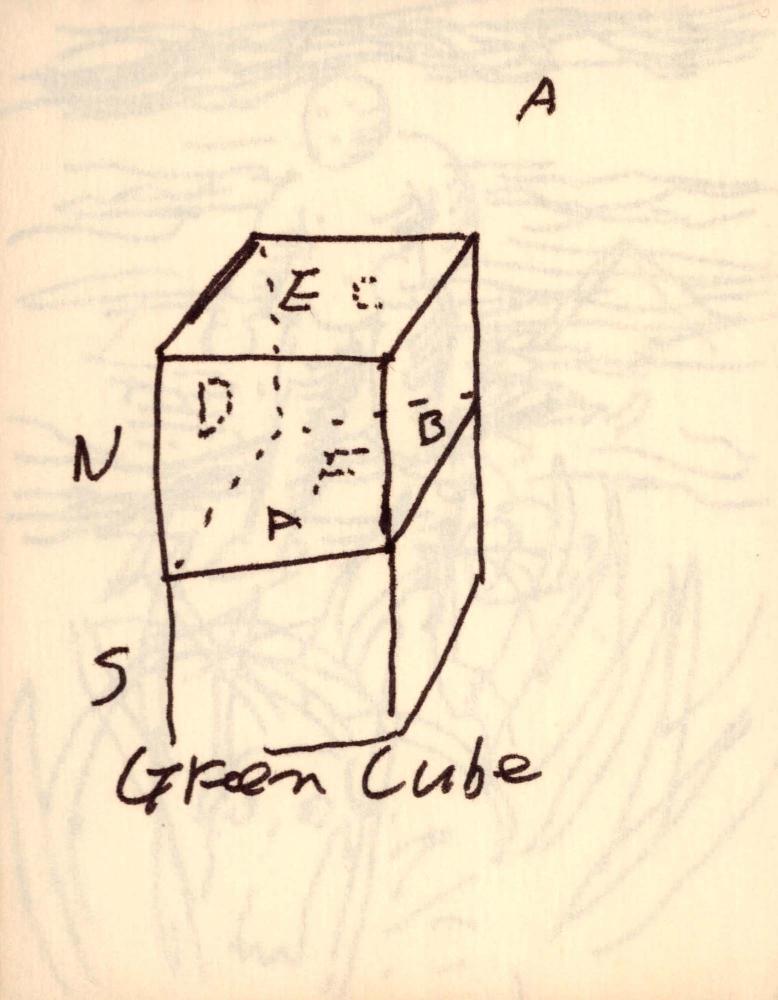 A
E C
D
B
N
F
A
S
Green Cube